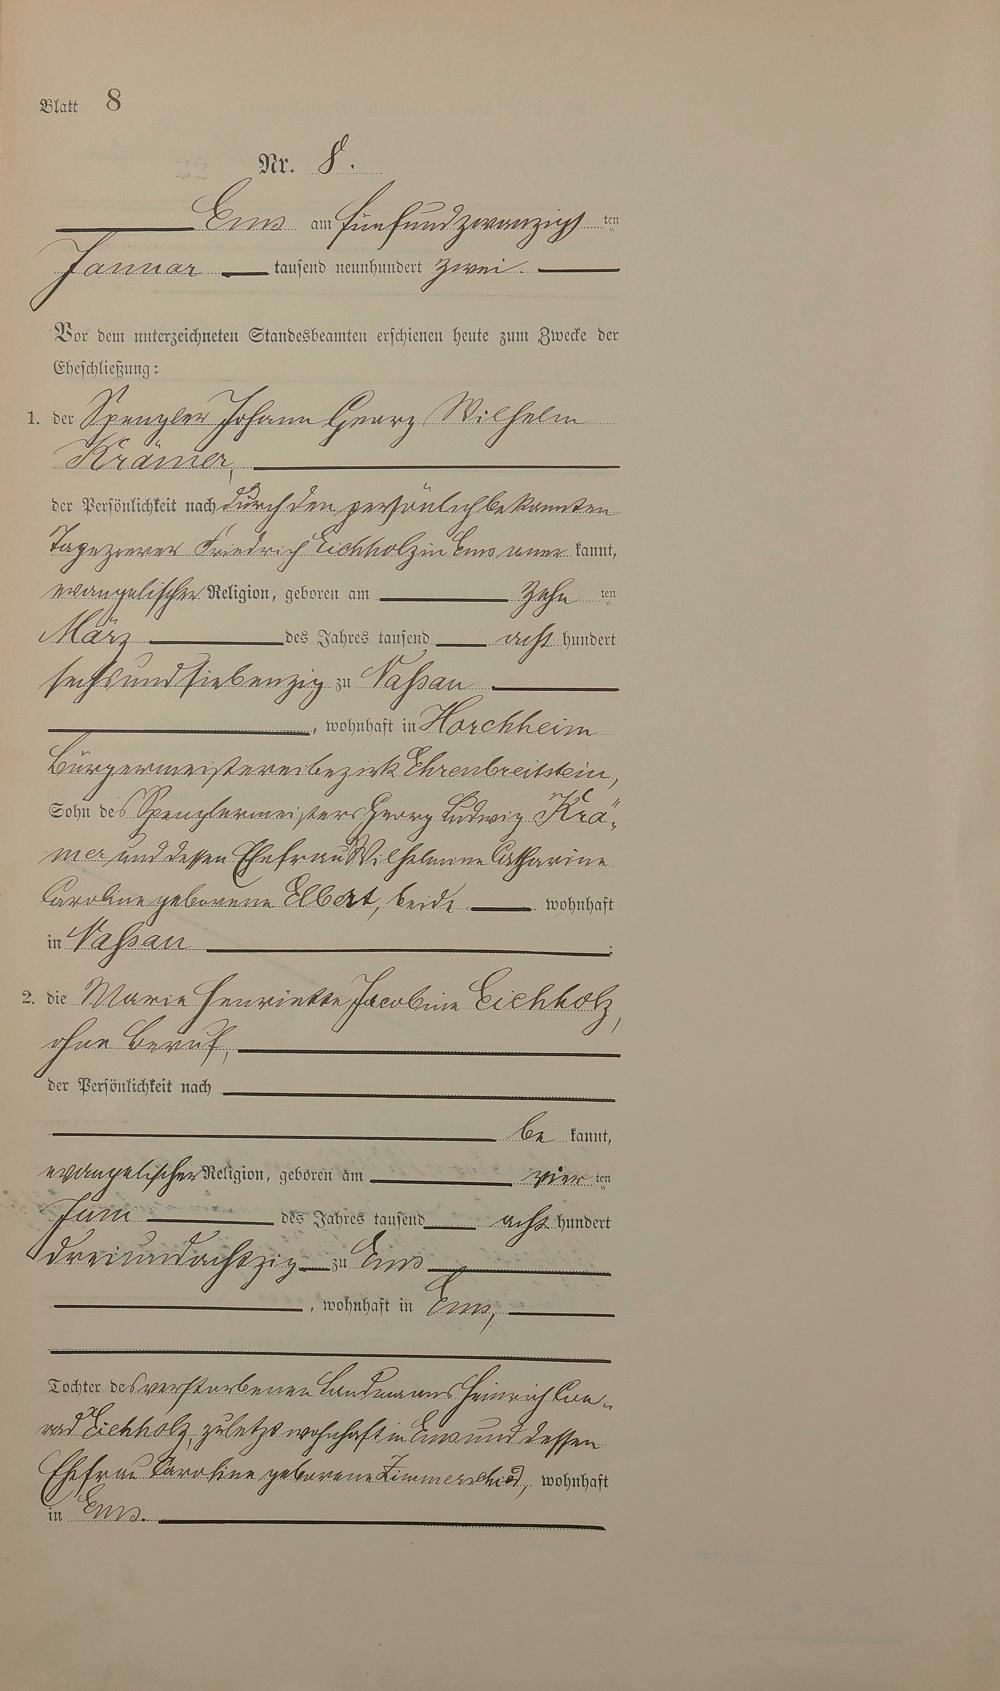 Blatt 8
Nr. 8.
Ems am fünfundzwanzigs ten
Januar tausend neunhundert zwei.
Vor dem unterzeichneten Standesbeamten erschienen heute zum Zwecke der
Eheschließung:
1. der Spengler Johann Georg Wilhelm
Krämer,
der Persönlichkeit nach durch den persönlich bekannten
Friedrich Eichholz in Ems aner kannt,
evangelischer Religion, geboren am zehn ten
März des Jahres tausend acht hundert
sechsundsiebenzig zu Nassau
, wohnhaft in Horchheim
Bürgermeistereibezirk Ehrenbreitstein,
Sohn des Spenglermeisters Georg Ludwig Krä-
mer und dessen Ehefrau Wilhelmine Catharine
Caroline geborene Elbert, beide wohnhaft
in Nassau ;
2. die Marie Henriette Jacobine Eichholz,
ohne Beruf,
der Persönlichkeit nach
be kannt,
evangelischer Religion, geboren am vier ten
Juni des Jahres tausend acht hundert
dreiundachtzig zu Ems
, wohnhaft in Ems,
Tochter des verstorbenen Landmanns Heinrich Con-
rad Eichholz, zuletzt wohnhaft in Ems und dessen
Ehefrau Caroline geborene Zimmerschied, wohnhaft
in Ems.